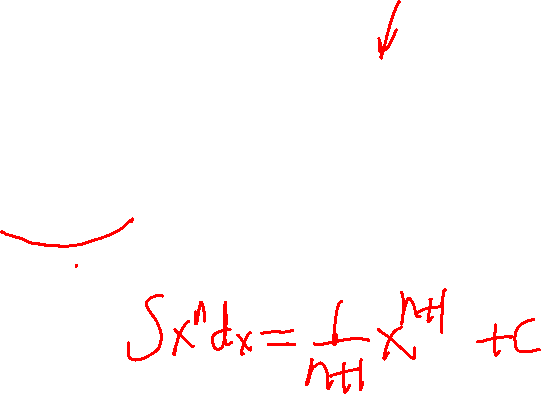 ∫xⁿdx = 1/(n+1) xⁿ⁺¹ + C